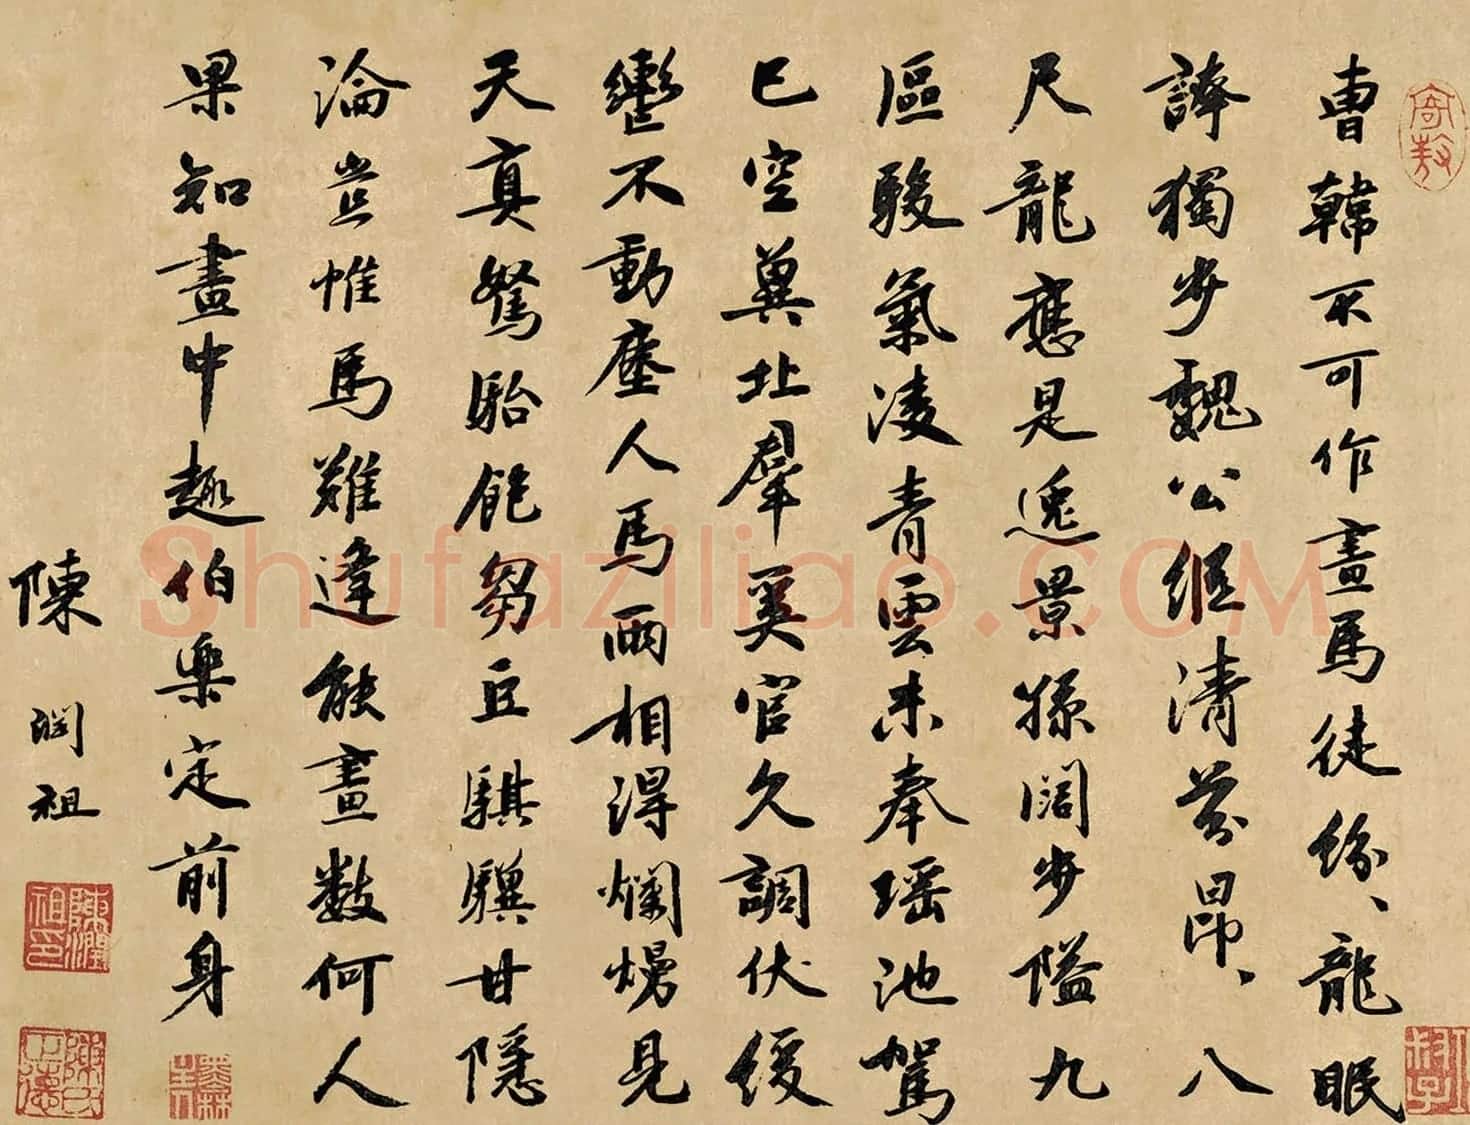 曹韓不可作畫馬徒紛、龍眠
誇獨步魏公繼清芬昂、八
尺龍應是逸景孫闊步隘九
區駿氣凌青雲未奉瑤池駕
已空冀北羣奚官久調伏緩
轡不動塵人馬兩相得爛熳見
天真駑駘飽芻豆騏驥甘隱
淪豈惟馬難逢能畫數何人
果知畫中趣伯樂定前身
陳澗祖
Shufaziliao.COM